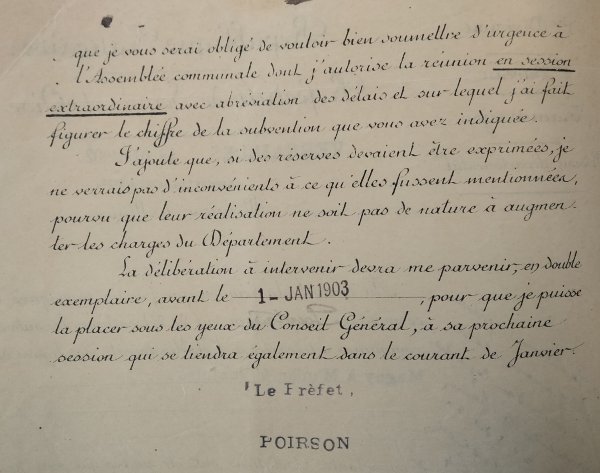 que je vous serai obligé de vouloir bien soumettre d'urgence à
l'Assemblée communale dont j'autorise la réunion en session
extraordinaire avec abréviation des délais et sur lequel j'ai fait
figurer le chiffre de la subvention que vous avez indiquée.
J'ajoute que, si des réserves devaient être exprimées, je
ne verrais pas d'inconvénients à ce qu'elles fussent mentionnées,
pourvu que leur réalisation ne soit pas de nature à augmen-
ter les charges du Département.
La délibération à intervenir devra me parvenir, en double
exemplaire, avant le 1 - JAN 1903, pour que je puisse
la placer sous les yeux du Conseil Général, à sa prochaine
session qui se tiendra également dans le courant de Janvier.
Le Prèfet,
POIRSON